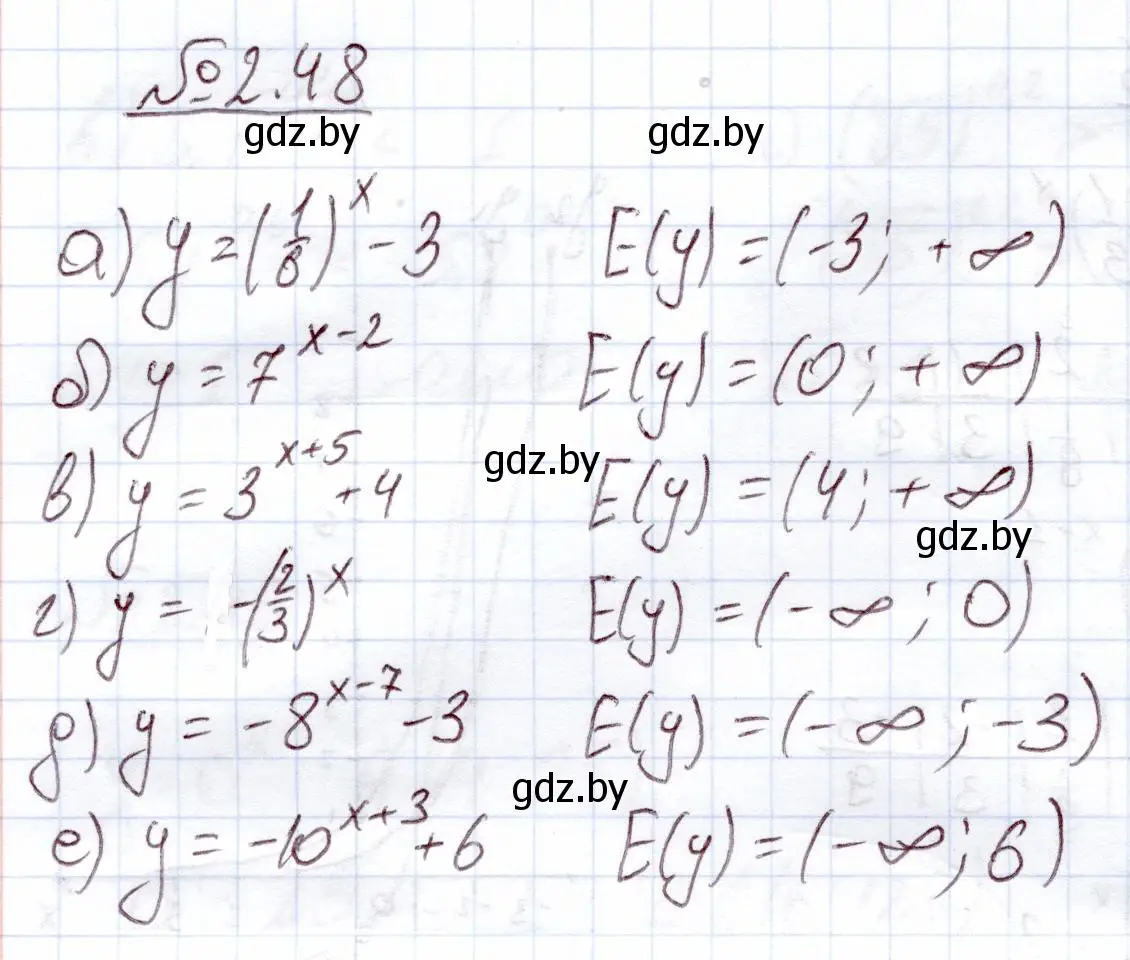 №2.48
gdz.by gdz.by
а) y = (1/6)^x - 3 E(y) = (-3; +∞)
б) y = 7^(x-2) E(y) = (0; +∞)
в) y = 3^(x+5) + 4 gdz.by E(y) = (4; +∞)
gdz.by
г) y = -(2/3)^x E(y) = (-∞; 0)
д) y = -8^(x-7) - 3 E(y) = (-∞; -3)
gdz.by
е) y = -10^(x+3) + 6 E(y) = (-∞; 6)